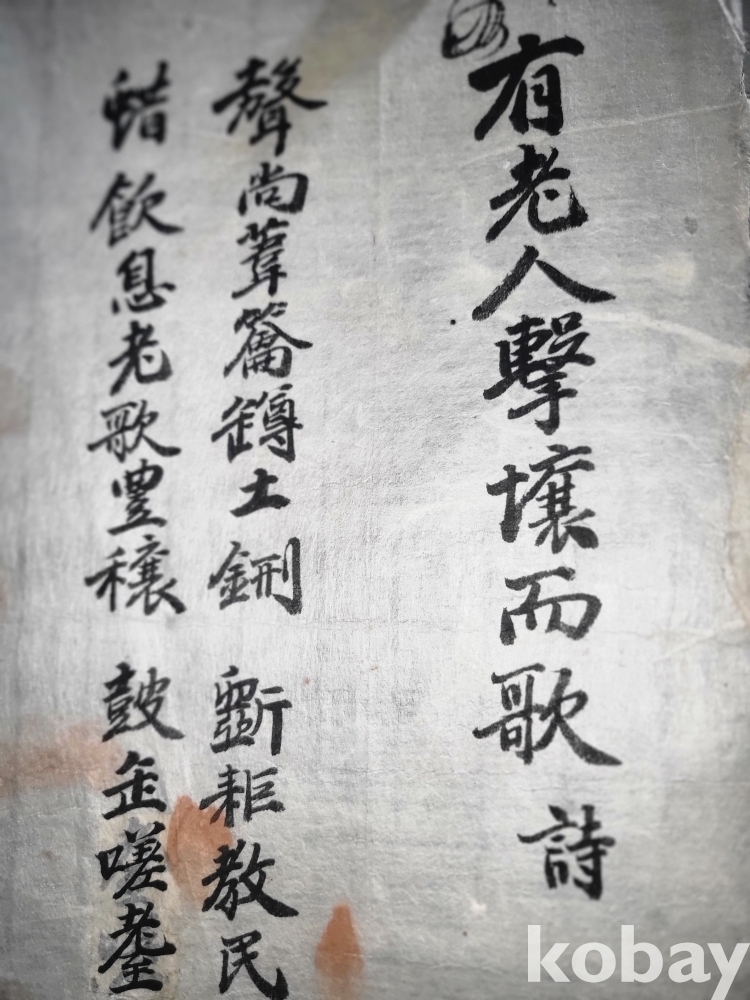 有老人擊壤而歌 詩
聲尚葦籥罇土鉶 斲耟教民
蜡飮息老歌豊穰 皷缶嗟耋
kobay